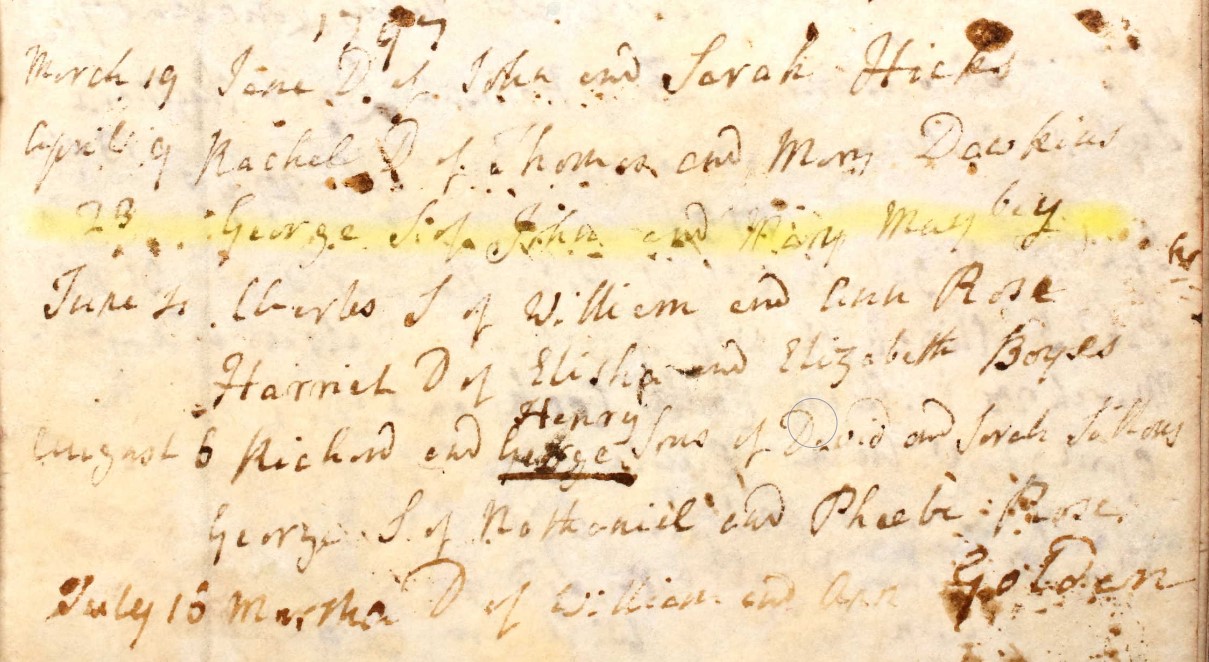 1797
March 19 Jane D of John and Sarah Hicks
April 9 Rachel D of Thomas and Mary Dawkins
23 George S of John and Mary Maybey
June 4 Charles S of William and Ann Rose
Harriet D of Elisha and Elizabeth Boyes
Henry
August 6 Richard and George Sons of David and Sarah
George S of Nathaniel and Phoebe Rose
July 16 Martha D of William and Ann Golden